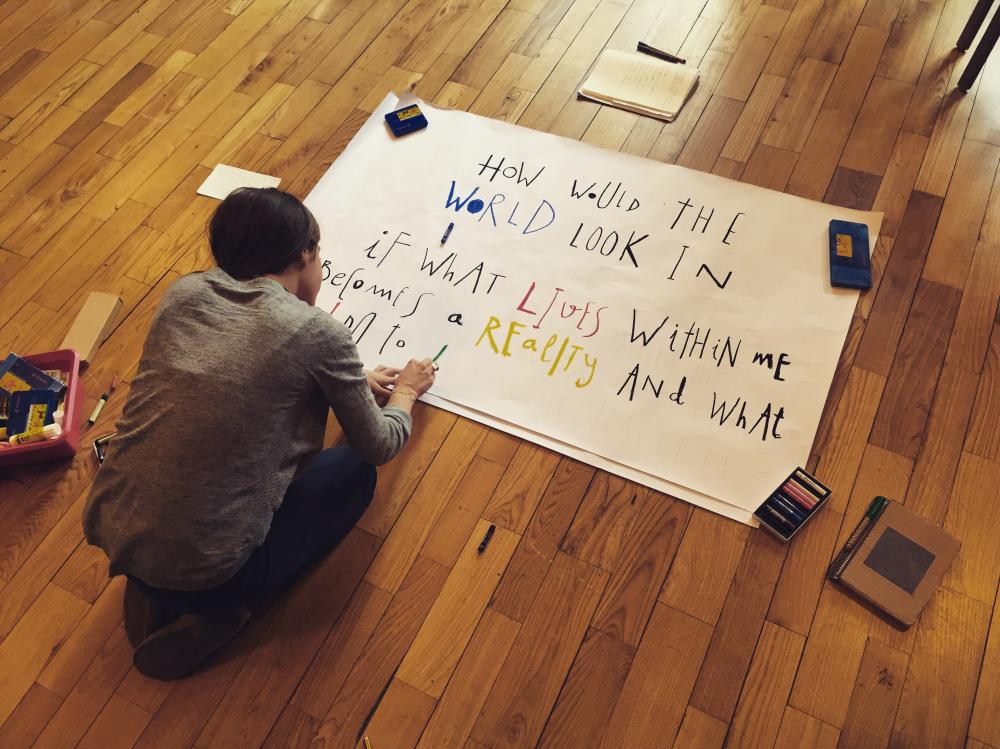 HOW WoULD THE
WORLD LOOK IN
iF WhAT LIVES WitHiN mE
Becomes a REalITy ANd WhAt
to